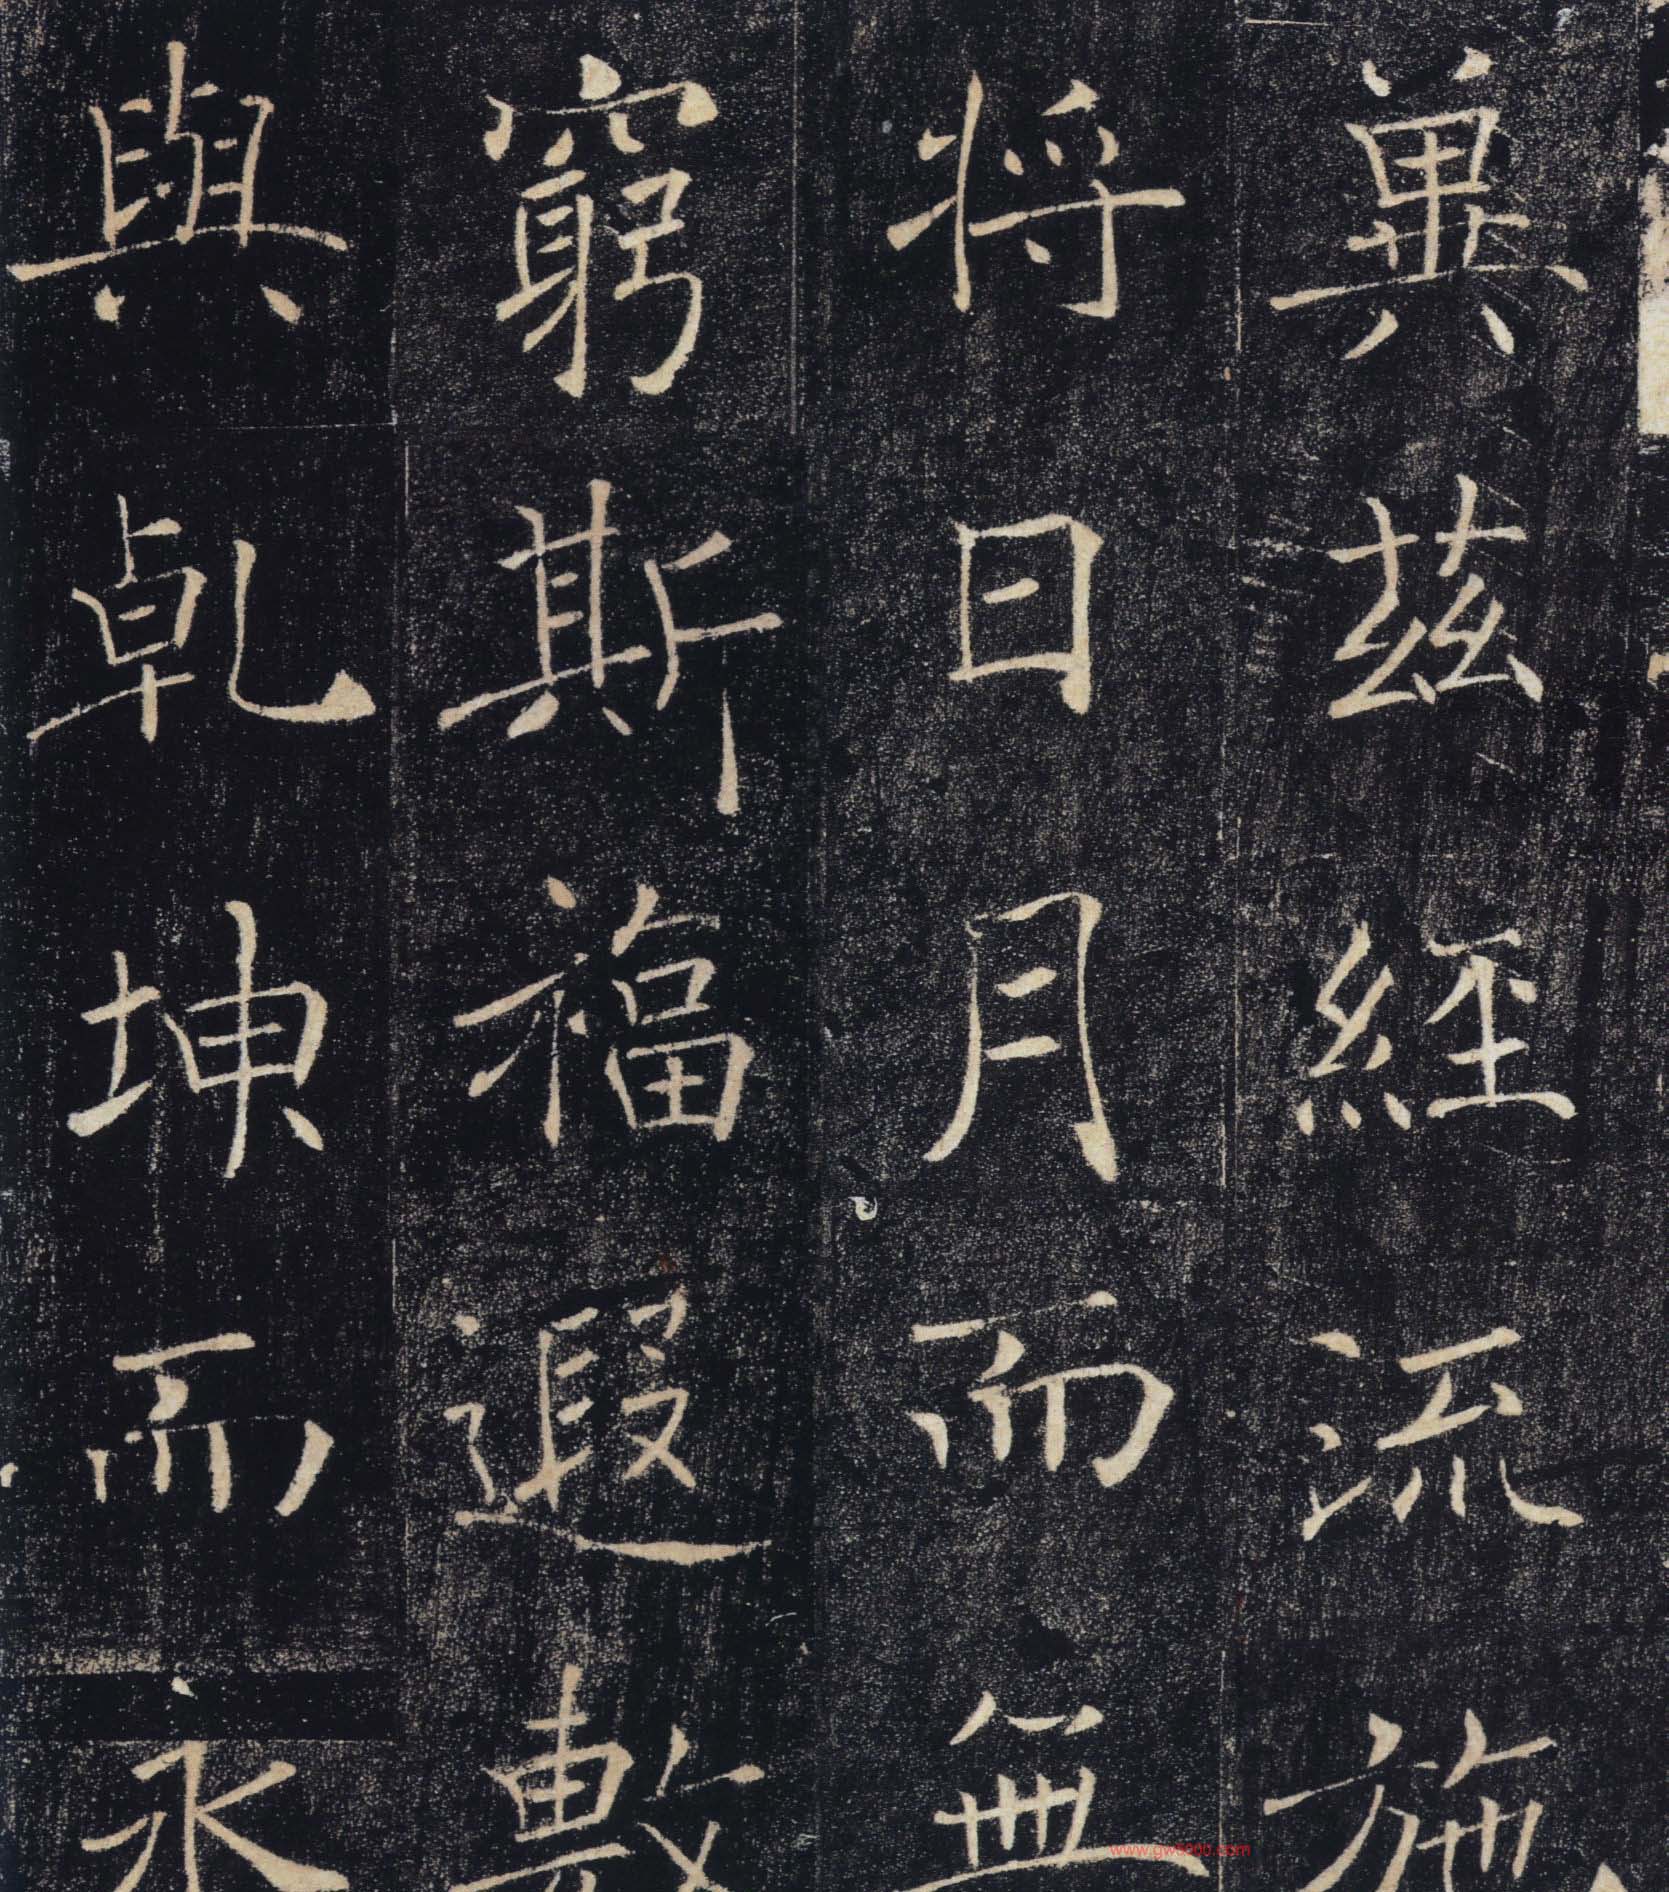 冀茲經流施
将日月而無
窮斯福遐敷
與乾坤而永
www.gw8000.com